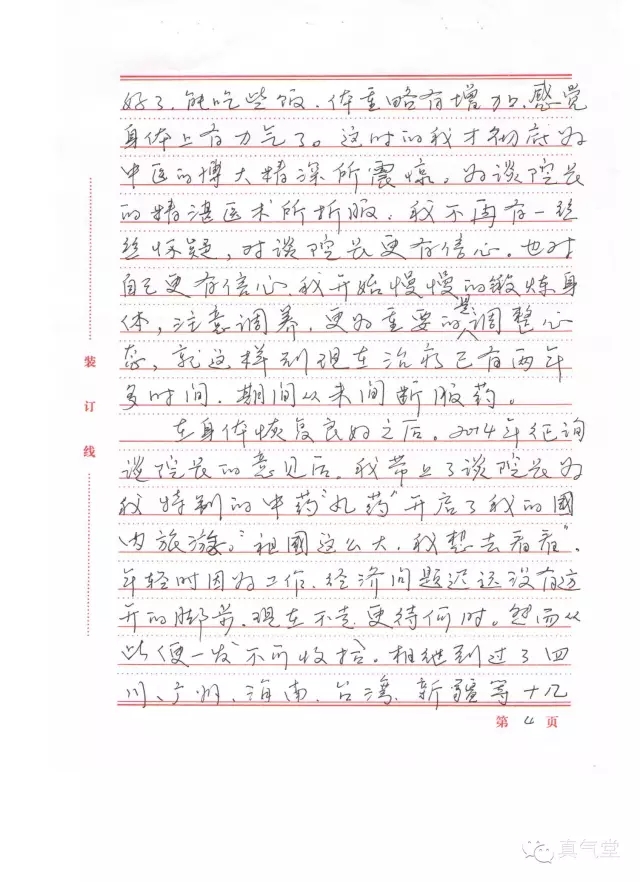 好了，能吃些饭，体重略有增加，感觉
身体上有力气了。这时的我才彻底为
中医的博大精深所震憾，为谈院长
的精湛医术所折服，我不再有一丝
丝怀疑，对谈院长更有信心，也对
自己更有信心，我开始慢慢的锻炼身
体，注意调养，更为重要的是调整心
态，就这样到现在治疗已有两年
多时间，期间从未间断服药。
在身体恢复良好之后，2014年征询
谈院长的意见后，我带上了谈院长为
我特制的中药"丸药"开启了我的国
内旅游。"祖國这么大，我想去看看"。
年轻时因为工作、经济问题迟迟没有迈
开的脚步，现在不走更待何时。然而从
此便一发不可收拾。相继到过了四
川、广州、海南、台湾、新疆等十几
第 4 页
装
订
线
真气堂